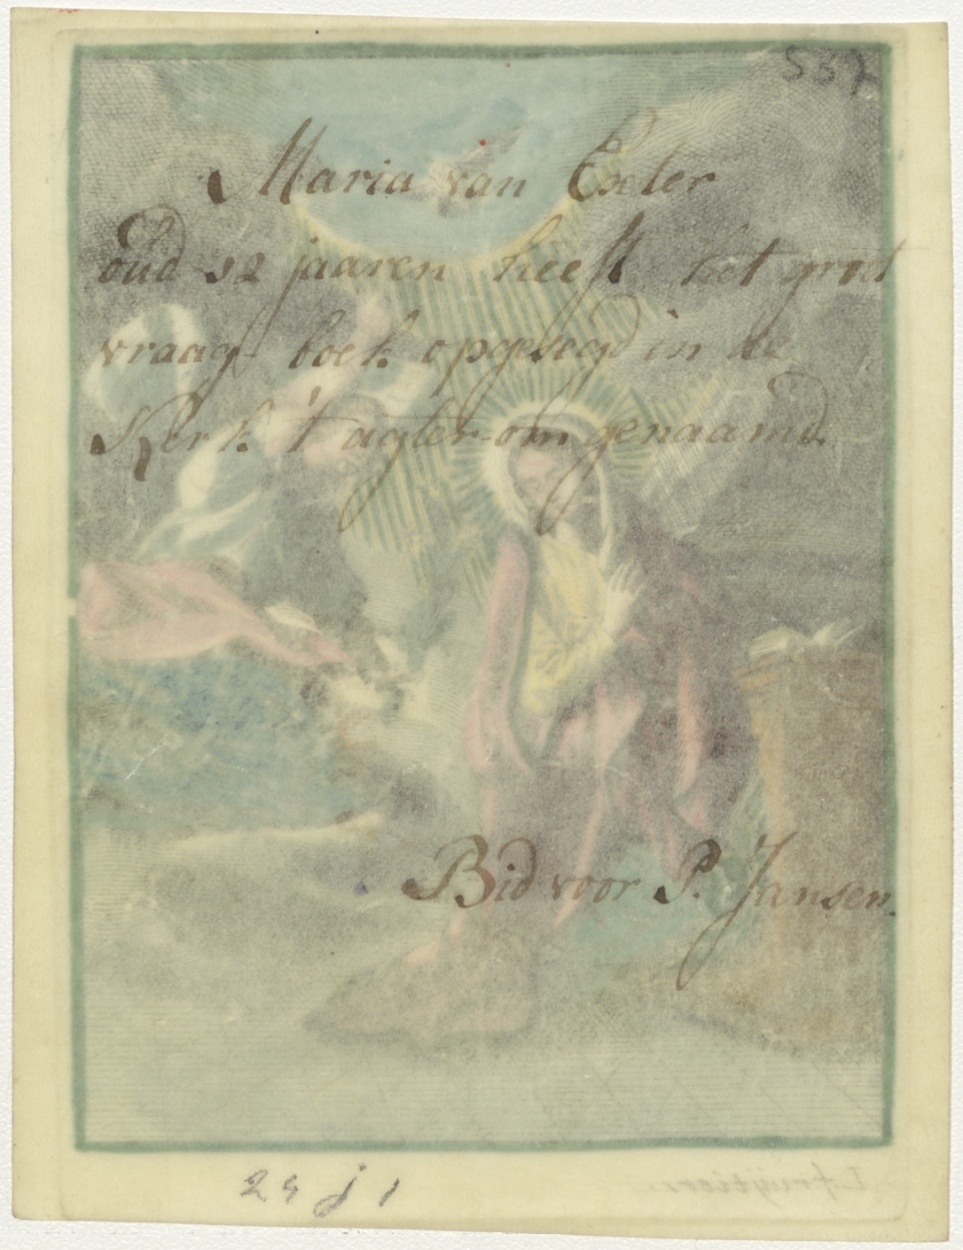 537
Maria van Exeter
oud 12 jaaren heeft het groot
vraag boek opgesegd in de
Kerk 't agter om genaamd.
Bid voor P. Jansen.
24 j 1